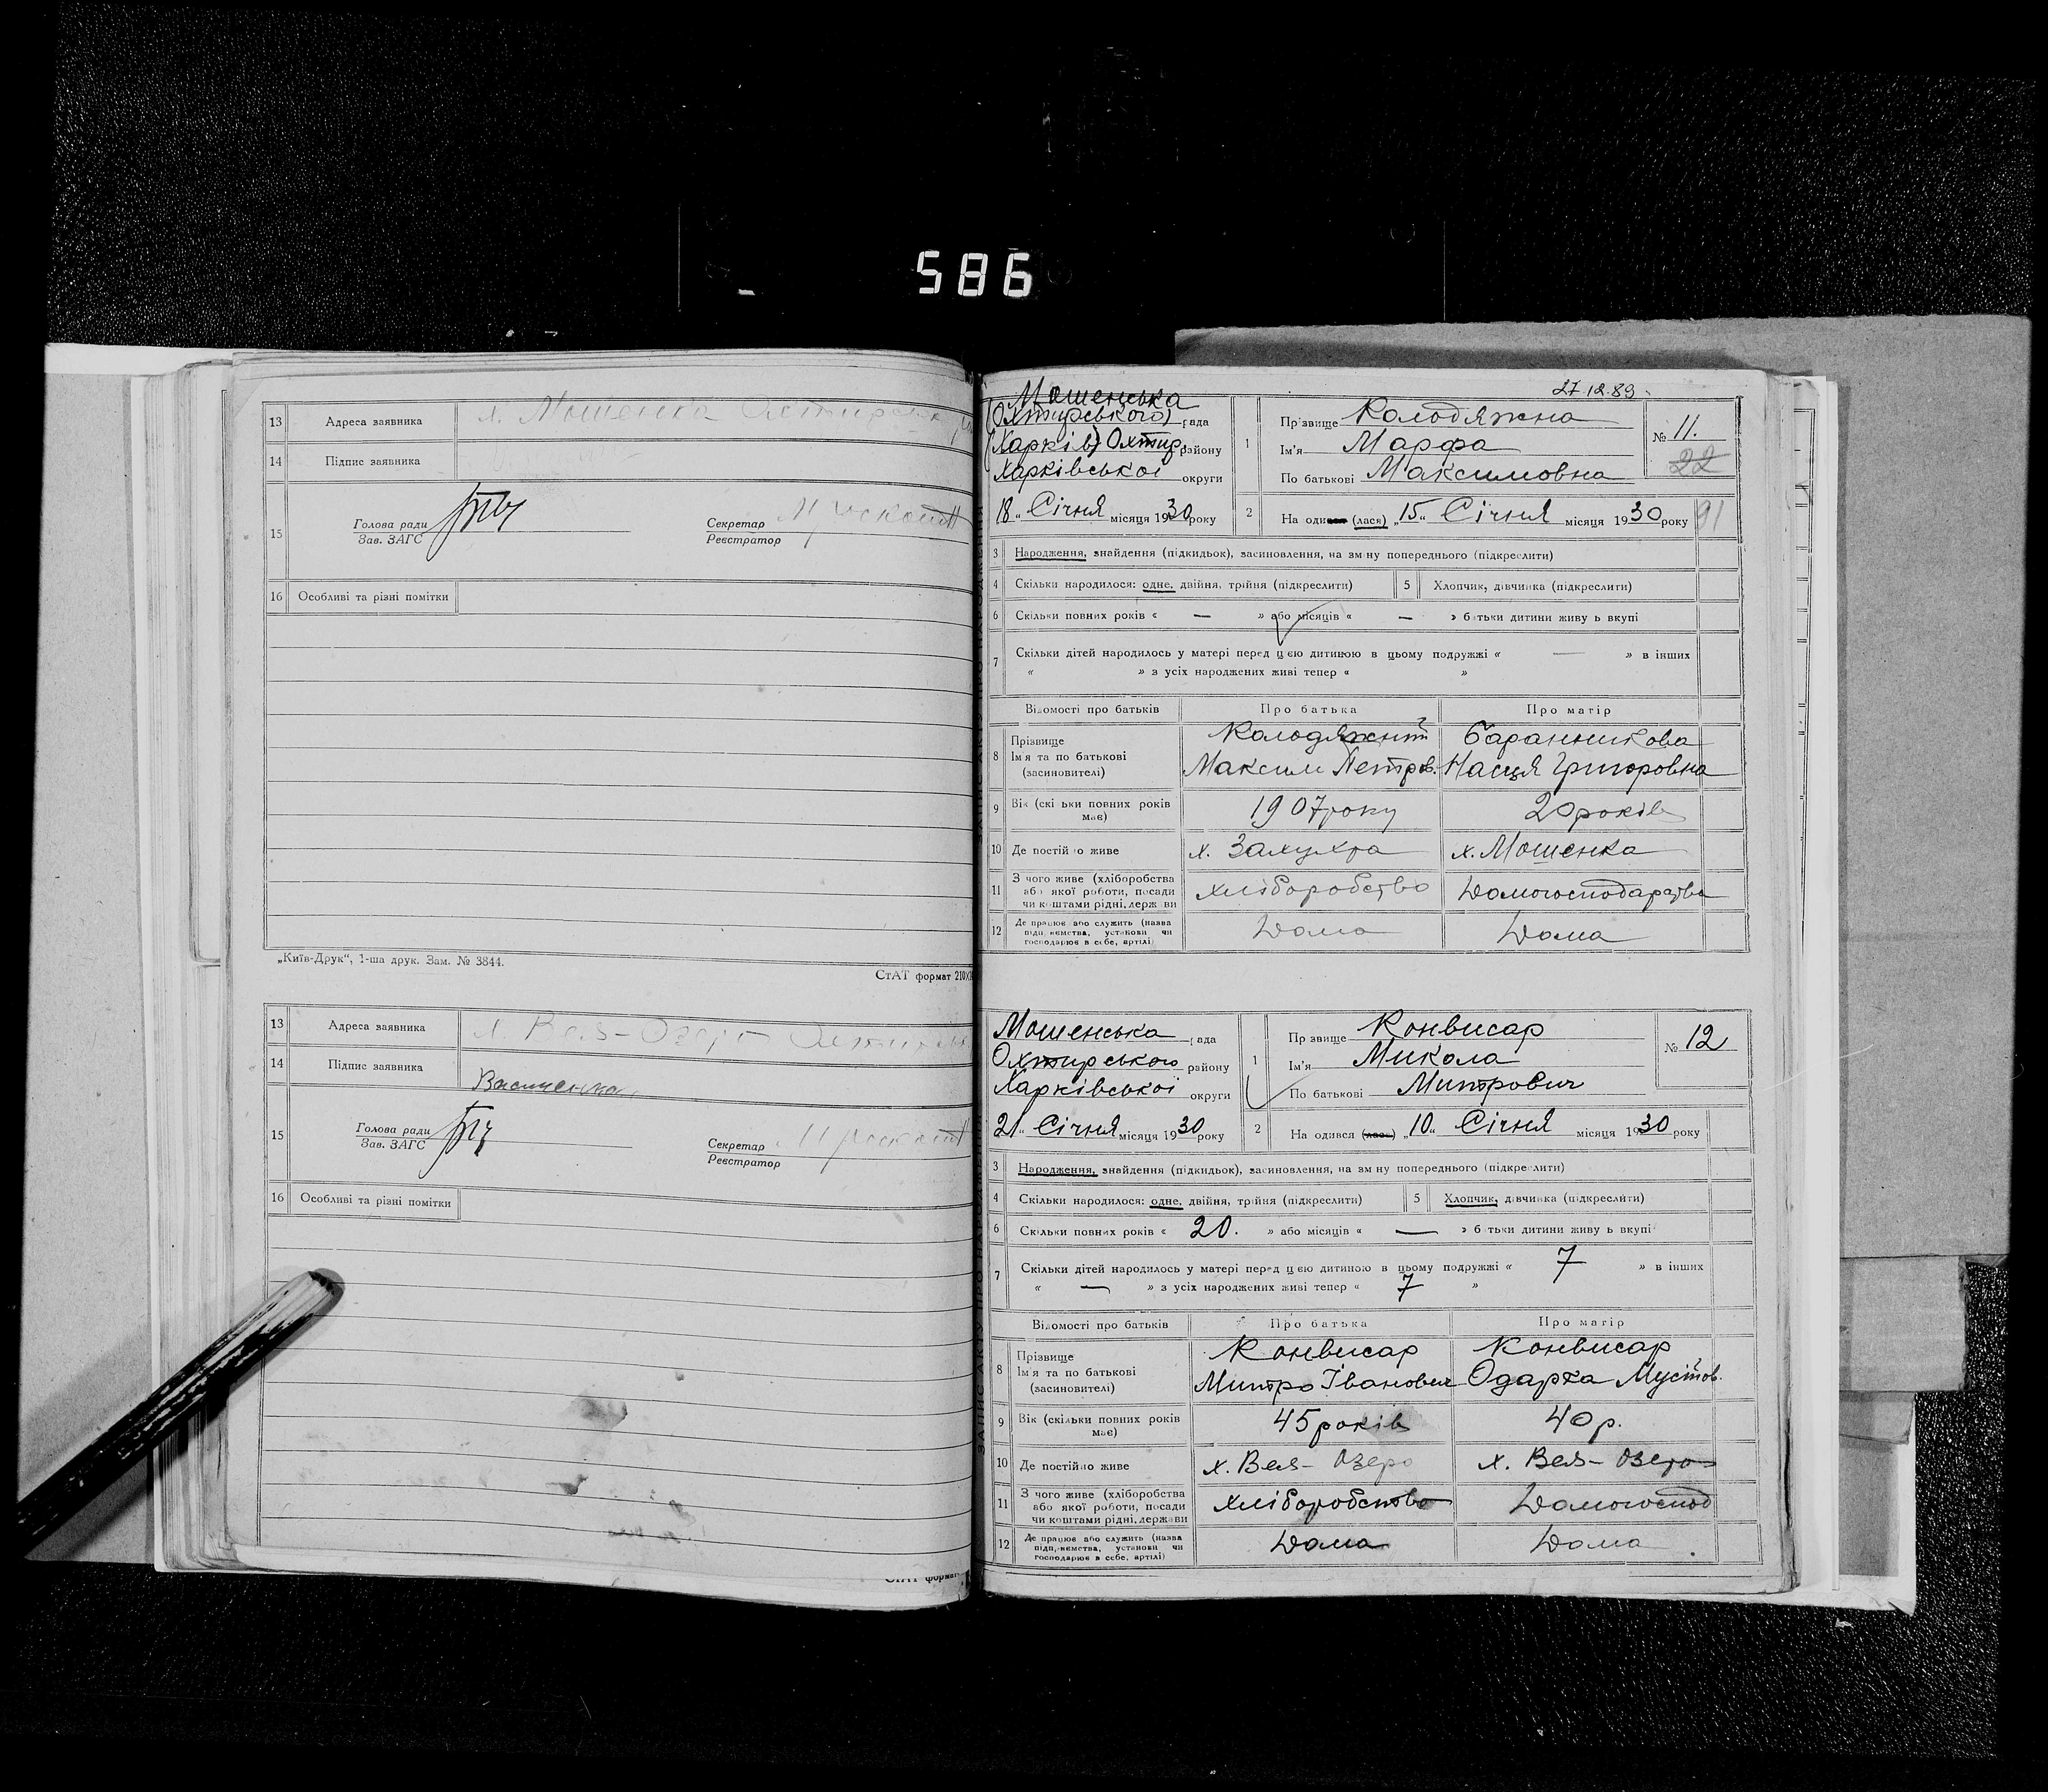 586
13 Адреса заявника х. Мошенка Охтирськ
14 Підпис заявника
15 Голова ради
Зав. ЗАГС
Секретар
Реєстратор
16 Особливі та різні помітки
„Київ-Друк“, 1-ша друк. Зам. № 3844.
СтАТ формат 210
13 Адреса заявника х Вел-Озеро Охтирськ
14 Підпис заявника
15 Голова ради
Зав. ЗАГС
Секретар
Реєстратор
16 Особливі та різні помітки
СтАТ формат
27.12.89
Мошенська
(Охтирського) рада
(Харків) Охтир. району
Харківської округи
18 „ Січня місяця 1930 року
1 Прізвище Колодяжна
Ім'я Марфа
По батькові Максимовна
№ 11.
22
2 На один (лася) „15“ Січня місяця 1930 року 91
3 Народження, знайдення (підкидьок), засиновлення, на зм ну попереднього (підкреслити)
4 Скільки народилося: одне, двійня, трійня (підкреслити) 5 Хлопчик, дівчинка (підкреслити)
6 Скільки повних років « — » або місяців « — » б тьки дитини живу ь вкупі
7 Скільки дітей народилось у матері перед цією дитиною в цьому подружжі « — » в інших
« » з усіх народжених живі тепер « »
Відомості про батьків Про батька Про матір
8 Прізвище Колодяжний Баранникова
Ім'я та по батькові Максим Петров. Насця Григоровна
(засиновителі)
9 Вік (скі ьки повних років має) 1907 року 20 років
10 Де постій о живе х. Залужра х. Мошенка
11 З чого живе (хліборобства або якої роботи, посади чи коштами рідні, держ ви хліборобство Домогосподарство
12 Де працює або служить (назва підприємства, установи чи господарює в себе, артілі) Дома Дома
Мошенська рада
Охтирського району
Харківської округи
21 „ Січня місяця 1930 року
1 Пр звище Конвисар
Ім'я Микола
По батькові Митрович
№ 12
2 На одився (лась) „10“ Січня місяця 1930 року
3 Народження, знайдення (підкидьок), засиновлення, на зм ну попереднього (підкреслити)
4 Скільки народилося: одне, двійня, трійня (підкреслити) 5 Хлопчик, дівчинка (підкреслити)
6 Скільки повних років « 20. » або місяців « — » б тьки дитини живу ь вкупі
7 Скільки дітей народилось у матері перед цією дитиною в цьому подружжі « 7 » в інших
« — » з усіх народжених живі тепер « 7 »
Відомості про батьків Про батька Про матір
8 Прізвище Конвисар Конвисар
Ім'я та по батькові Митро Іванович Одарка Мусійов.
(засиновителі)
9 Вік (скільки повних років має) 45 років 40 р.
10 Де постійно живе х. Вел- Озеро х. Вел- Озеро
11 З чого живе (хліборобства або якої роботи, посади чи коштами рідні, держави хліборобство Домогоспод
12 Де працює або служить (назва підприємства, установи чи господарює в себе, артілі) Дома Дома